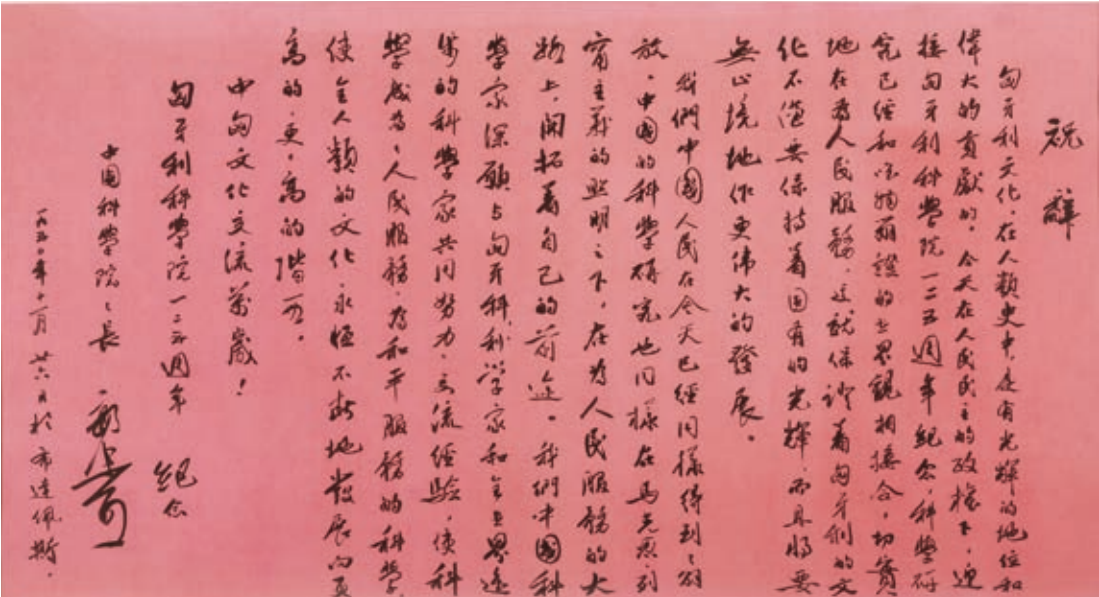 祝辭
匈牙利文化,在人類史中,是有光輝的地位和
偉大的貢獻的。今天在人民民主的政權下,迎
接匈牙利科學院一二五週年紀念,科學研
究已經和唯物辯證的世界觀相接合,切實
地在為人民服務,這就保證着匈牙利的文
化不僅要保持着固有的光輝,而且將要
無止境地作更偉大的發展。
我們中國人民在今天已經同樣得到了解
放。中國的科學研究也同樣在馬克思列
甯主義的照明之下,在為人民服務的大
路上,開拓着自己的前途。我們中國科
學家深願与匈牙利科學家和全世界進
步的科學家共同努力,交流經驗,使科
學成為〻人民服務,為和平服務的科學
使全人類的文化永恒不斷地發展向更
高的,更高的階段。
中匈文化交流萬歲!
匈牙利科學院一二五週年 紀念
中國科學院〻長 郭沫若
一九五〇年十一月廿六日於布達佩斯。